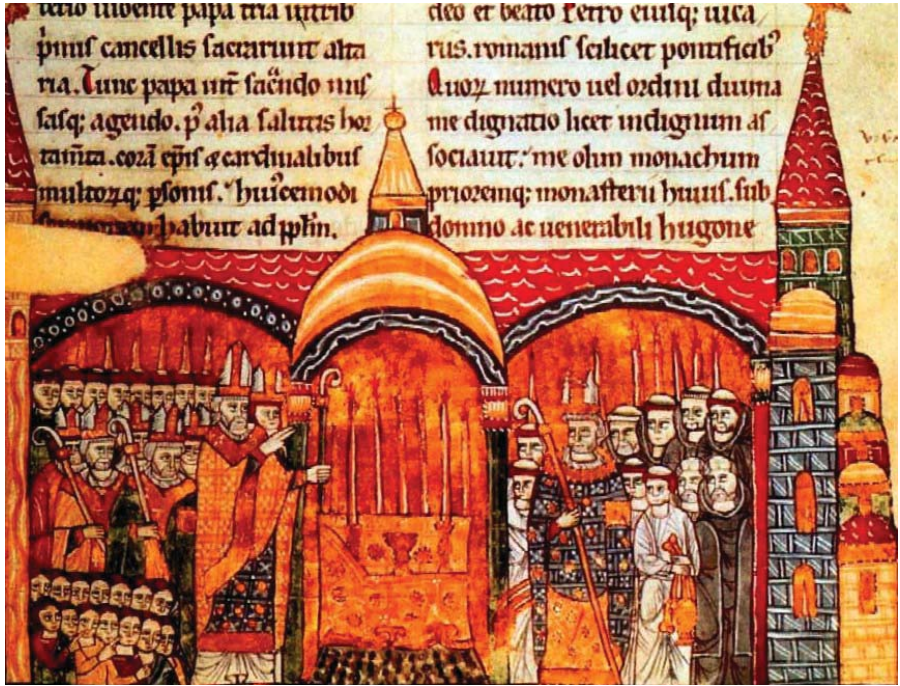 uiuente papa tria
pmis cancellis sacrarunt alta
ria. Tunc papa int̄ sac̄ndo mis
sasq; agendo. p' alia salutis hor
tam̄ta. corā ep̄is & cardinalibus
multoꝝq; ꝑsonis. hui'cemodi
habuit ad pplm̄.
deo et beato Petro eiusq; uica
riis. romanis scilicet pontificib'
Quoꝝ numero uel ordini diuina
me dignatio licet indignum as
sociauit. me olim monachum
prioremq; monasterii huius. sub
domno ac uenerabili hugone